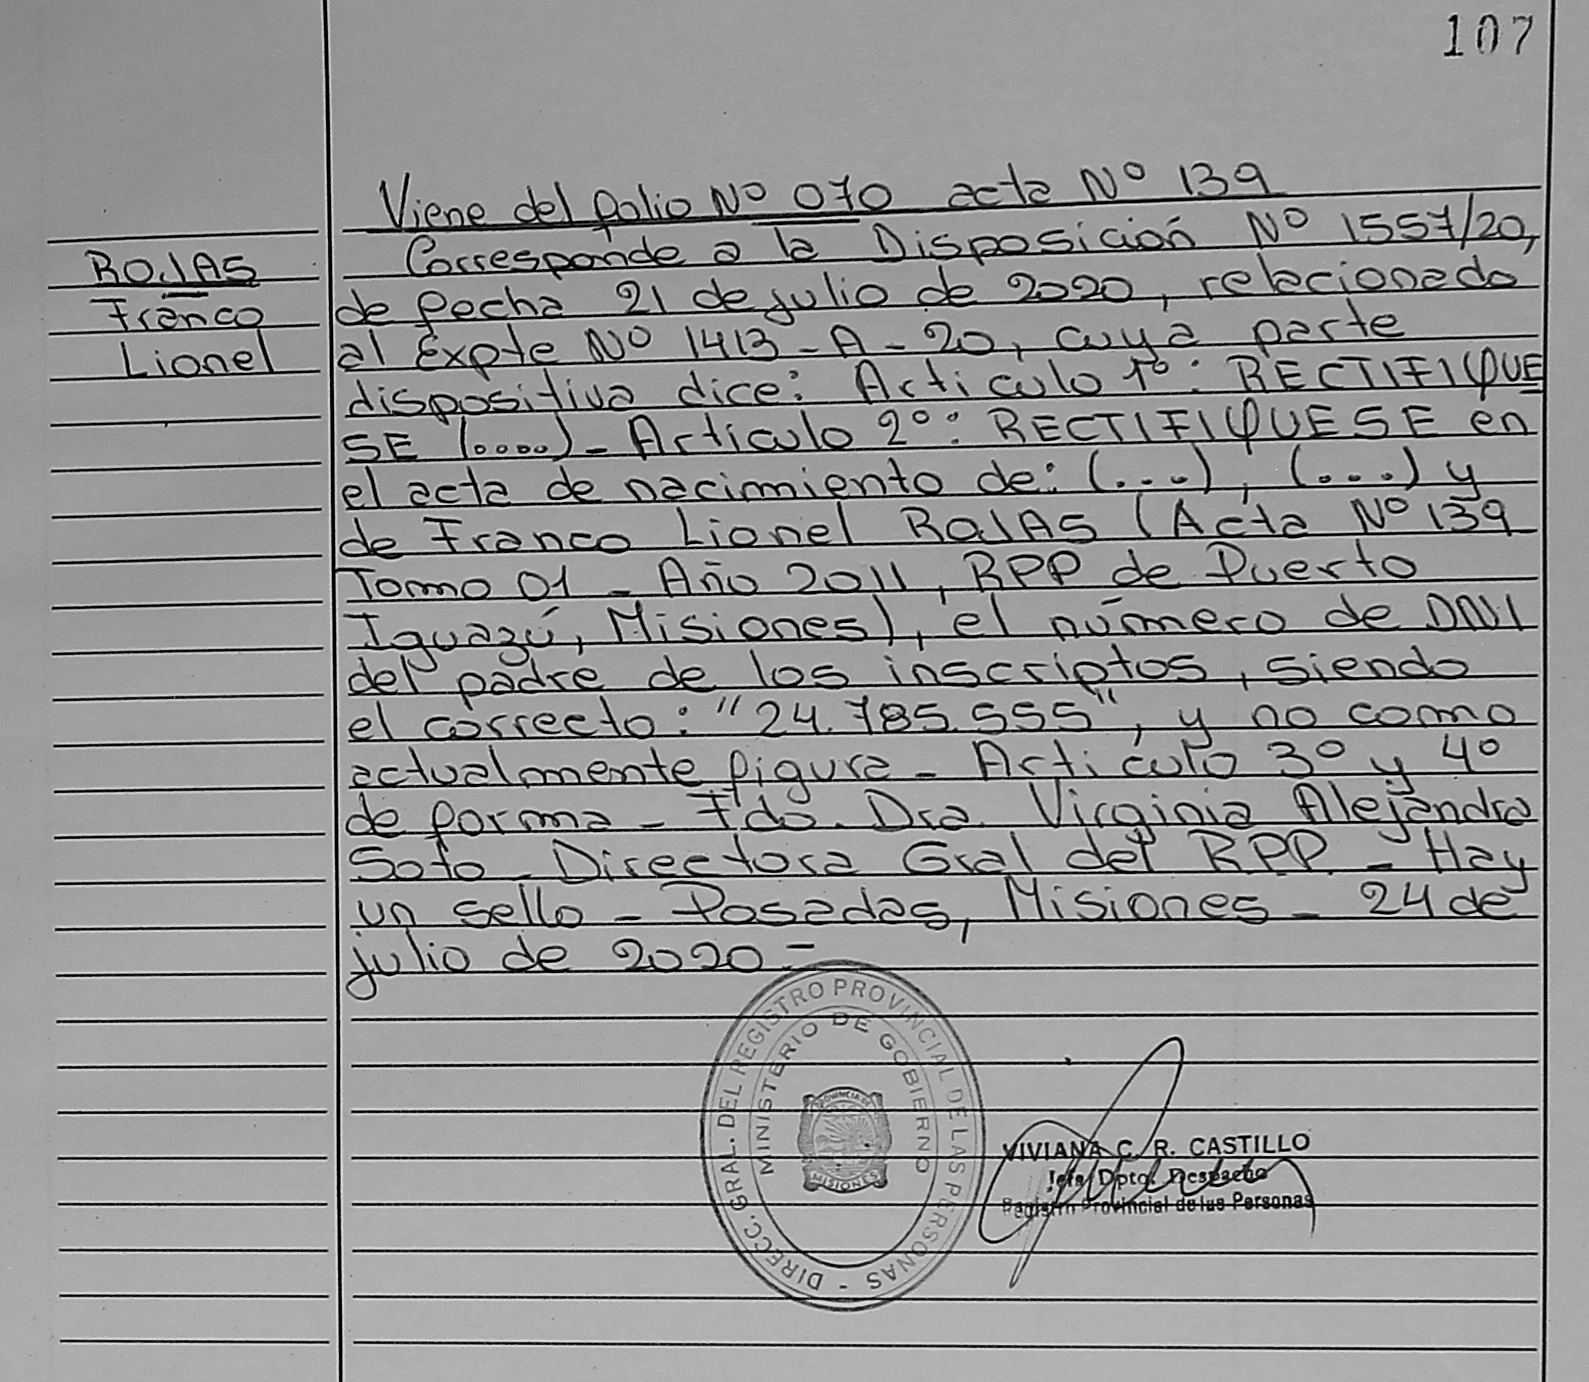 107
Viene del folio Nº 070 acta Nº 139
ROJAS
Franco
Lionel
Corresponde a la Disposición Nº 1557/20,
de fecha 21 de julio de 2020, relacionado
al Expte Nº 1413-A-20, cuya parte
dispositiva dice: Articulo 1º: RECTIFIQUE
SE (....)- Articulo 2º: RECTIFIQUESE en
el acta de nacimiento de: (...), (...) y
de Franco Lionel ROJAS (Acta Nº 139
Tomo 01 - Año 2011, RPP de Puerto
Iguazú, Misiones), el número de DNI
del padre de los inscriptos, siendo
el correcto: "24.785.555", y no como
actualmente figura - Artículo 3º y 4º
de forma - Fdo. Dra. Virginia Alejandra
Soto - Directora Gral del RPP - Hay
un sello - Posadas, Misiones - 24 de
julio de 2020.-
DIRECC. GRAL. DEL REGISTRO PROVINCIAL DE LAS PERSONAS -
MINISTERIO DE GOBIERNO
PROVINCIA DE
MISIONES
VIVIANA C. R. CASTILLO
Jefa Dpto. Despacho
Registro Provincial de las Personas